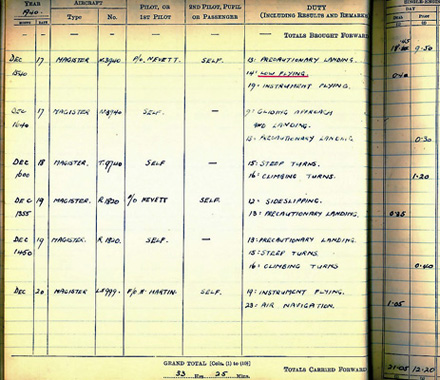 YEAR AIRCRAFT PILOT, OR 2ND PILOT, PUPIL DUTY
1940. Type No. 1ST PILOT OR PASSENGER (INCLUDING RESULTS AND REMARKS
MONTH DATE DAY
DUAL PILOT
TOTALS BROUGHT FORWARD 9.50
DEC 17 MAGISTER NEVETT. SELF. 13: PRECAUTIONARY LANDING.
1540 14: LOW FLYING. 0.40
19: INSTRUMENT FLYING.
DEC 17 MAGISTER SELF. — 9: GLIDING APPROACH
1640 AND LANDING.
13: PRECAUTIONARY LANDING 0.30
DEC 18 MAGISTER. T.9740 SELF — 15: STEEP TURNS.
1600 16: CLIMBING TURNS. 1.20
DEC 19 MAGISTER. R.1820 P/O NEVETT SELF. 12: SIDESLIPPING.
1355 13: PRECAUTIONARY LANDING.
DEC 19 MAGISTER. R.1820. SELF. — 13: PRECAUTIONARY LANDING.
1450 15: STEEP TURNS
16: CLIMBING TURNS 0.40
DEC 20 MAGISTER MARTIN. SELF. 19: INSTRUMENT FLYING.
23: AIR NAVIGATION. 1.05
GRAND TOTAL [Cols. (1) to (10)]
33 Hrs. 25 Mins. TOTALS CARRIED FORWARD 21.05 12.20